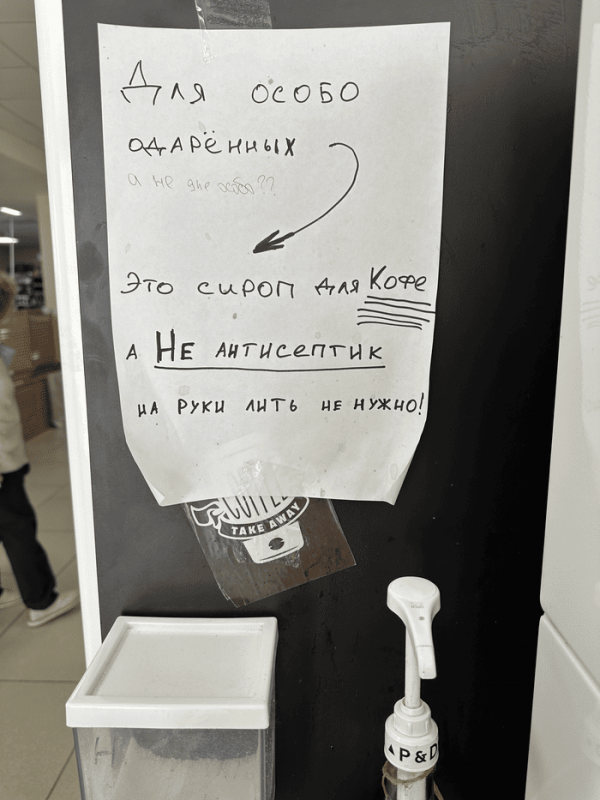 Для особо
одарённых
а не для особо??
Это сироп для Кофе
а Не антисептик
на руки лить не нужно!
COFFEE
TAKE AWAY
▲P&D